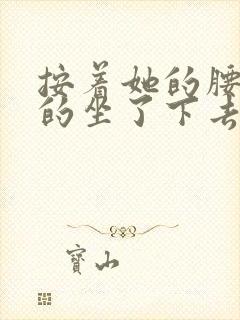 按着她的腰
的坐了下去
寶山